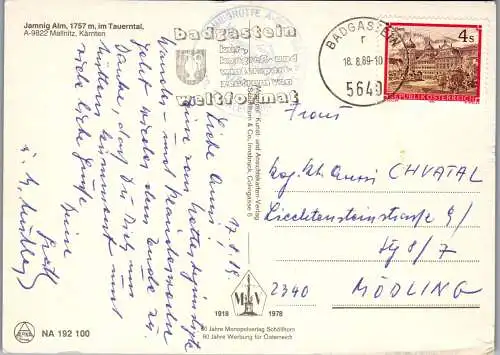 Jamnig Alm, 1757 m, im Tauerntal,
A-9822 Mallnitz, Kärnten
badgastein
kur-,
kongreß- und
wintersport-
zentrum von
weltformat
BADGASTEIN
r
18. 8. 89-10
5640
4s
REPUBLIK ÖSTERREICH
17. 8. 89
Liebe Anni,
eine vom Wetter begünstigte
Wander- und
geht wieder dem Ende zu.
Danke, daß Du Dich um
kümmerst und
viele liebe Grüße
Deine
"Monopol" Kunst- und Ansichtskarten-Verlag
Schöllhorn & Co., Innsbruck, Colingasse 6
Frau
CHVATAL
Liechtensteinstraße 9/
8/7
2340 MÖDLING
1918 MSIV 1978
60 Jahre Monopolverlag Schöllhorn
60 Jahre Werbung für Österreich
NA 192 100